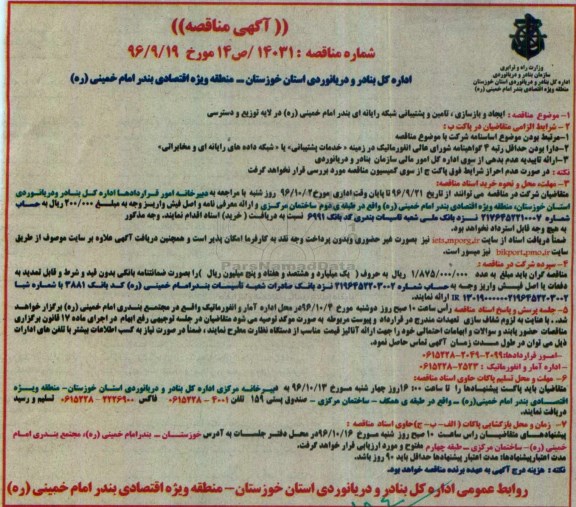 (( آگهی مناقصه ))
شماره مناقصه : ۱۴۰۳۱ /ص۱۴ مورخ ۹۶/۹/۱۹
وزارت راه و ترابری
سازمان بنادر و دریانوردی
اداره کل بنادر و دریانوردی استان خوزستان
منطقه ویژه اقتصادی بندر امام خمینی (ره)
اداره کل بنادر و دریانوردی استان خوزستان – منطقه ویژه اقتصادی بندر امام خمینی (ره)
۱- موضوع مناقصه : ایجاد و بازسازی ، تامین و پشتیبانی شبکه رایانه ای بندر امام خمینی (ره) در لایه توزیع و دسترسی
۲- شرایط الزامی متقاضیان در پاکت ب :
۱-مرتبط بودن موضوع اساسنامه شرکت با موضوع مناقصه
۲-دارا بودن حداقل رتبه ۴ گواهینامه شورای عالی انفورماتیک در زمینه « خدمات پشتیبانی» یا « شبکه داده های رایانه ای و مخابراتی»
۳-ارائه تاییدیه عدم بدهی از سوی اداره کل امور مالی سازمان بنادر و دریانوردی
نکته : در صورت عدم احراز شرایط فوق پاکت ج از سوی کمیسیون مناقصه مورد بررسی قرار نخواهد گرفت
۳- مهلت، محل و نحوه خرید اسناد مناقصه:
متقاضیان شرکت در مناقصه می توانند از تاریخ ۹۶/۹/۲۱ تا پایان وقت اداری مورخ ۹۶/۱۰/۲ روز شنبه با مراجعه به دبیرخانه امور قراردادها اداره کل بنادر ودریانوردی
استان خوزستان- منطقه ویژه اقتصادی بندر امام خمینی (ره) واقع در طبقه ی دوم ساختمان مرکزی و ارائه معرفی نامه و اصل فیش واریز وجه به مبلغ ۲۰۰/۰۰۰ ریال به حساب
شماره ۲۱۷۶۴۵۲۲۱۰۰۰۷ نزد بانک ملی شعبه تاسیسات بندری کد بانک ۶۹۹۱ نسبت به دریافت ( خرید) اسناد اقدام نمایند. وجه مذکور
به هیچ وجه قابل استرداد نخواهد بود.
ضمناً دریافت اسناد از سایت iets.mporg.ir نیز بصورت غیر حضوری وبدون پرداخت وجه نقد به کارفرما امکان پذیر است و همچنین دریافت آگهی علاوه بر سایت موصوف از طریق
سایت bikport.pmo.ir نیز میسور است.
۴ – سپرده شرکت در مناقصه :
مناقصه گران باید مبلغ به عدد ۱/۸۷۵/۰۰۰/۰۰۰ ریال به حروف ( یک میلیارد و هشتصد و هفتاد و پنج میلیون ریال )را بصورت ضمانتنامه بانکی بدون قید و شرط و قابل تمدید به
دفعات یا اصل فیش واریز وجه به حساب شماره ۲۱۹۶۴۵۲۲۰۳۰۰۲ نزد بانک صادرات شعبه تأسیسات بندرامام خمینی (ره) کد بانک ۳۸۸۱ با شماره شبا
IR ۱۳۰۱۹۰۰۰۰۰۰۰۲۱۹۶۴۵۲۲۰۳۰۰۲ ارائه نمایند.
۵- جلسه پرسش و پاسخ اسناد مناقصه رأس ساعت ۱۰ صبح روز دوشنبه مورخ ۹۶/۱۰/۴ درمحل اداره آمار و انفورماتیک واقع در مجتمع بندری امام خمینی (ره) برگزار خواهد
شد. با عنایت به لزوم شفاف سازی تعهدات مندرج در قرارداد و پیوست مربوطه به صورت موکد توصیه می شود متقاضیان در جلسه توجیهی رفع ابهام در اجرای ماده ۱۷ قانون برگزاری
مناقصات حضور یابند و سوالات و ابهامات احتمالی خود را جهت ارائه آنالیز قیمت مناسب از دستگاه نظارت مطرح نمایند ، ضمناً در صورت نیاز به کسب اطلاعات بیشتر با تلفن های ادارات
ذیل می توان در طول مدت زمان آگهی تماس حاصل نمود.
-امور قراردادها:۲۰۹۹-۲۰۴۹-۰۶۱۵۲۲۸
- اداره آمار و انفورماتیک : ۲۵۲۳-۰۶۱۵۲۲۸
۶- مهلت و محل تسلیم پاکات حاوی اسناد مناقصه:
متقاضیان باید پاکت پیشنهادها را تا ساعت ۱۶:۰۰روز چهار شنبه مورخ ۹۶/۱۰/۱۳ به دبیرخانه مرکزی اداره کل بنادر و دریانوردی استان خوزستان- منطقه ویژه
اقتصادی بندر امام خمینی(ره) – واقع در طبقه ی همکف – ساختمان مرکزی - صندوق پستی ۱۵۹ تلفن ۴۰۰۱ – ۰۶۱۵۲۲۸ فاکس ۲۲۲۶۹۰۰ – ۰۶۱۵۲۲۸ تسلیم و رسید
دریافت نمایند.
۷- زمان و محل بازگشایی پاکات ( الف- ب- ج)حاوی اسناد مناقصه :
پیشنهادهای متقاضیان راس ساعت ۱۰ صبح روز شنبه مورخ ۹۶/۱۰/۱۶ در محل دفتر جلسات به آدرس خوزستان – بندرامام خمینی (ره)، مجتمع بندری امام
خمینی (ره)- ساختمان مرکزی – طبقه چهارم مفتوح و مورد ارزیابی قرار خواهد گرفت.
مدت اعتبارپیشنهادها: مدت اعتبار پیشنهادها حداقل باید ۹۰ روز باشد.
نکته : هزینه درج آگهی به عهده برنده مناقصه خواهد بود.
روابط عمومی اداره کل بنادر و دریانوردی استان خوزستان – منطقه ویژه اقتصادی بندر امام خمینی (ره)
ParsNamadData